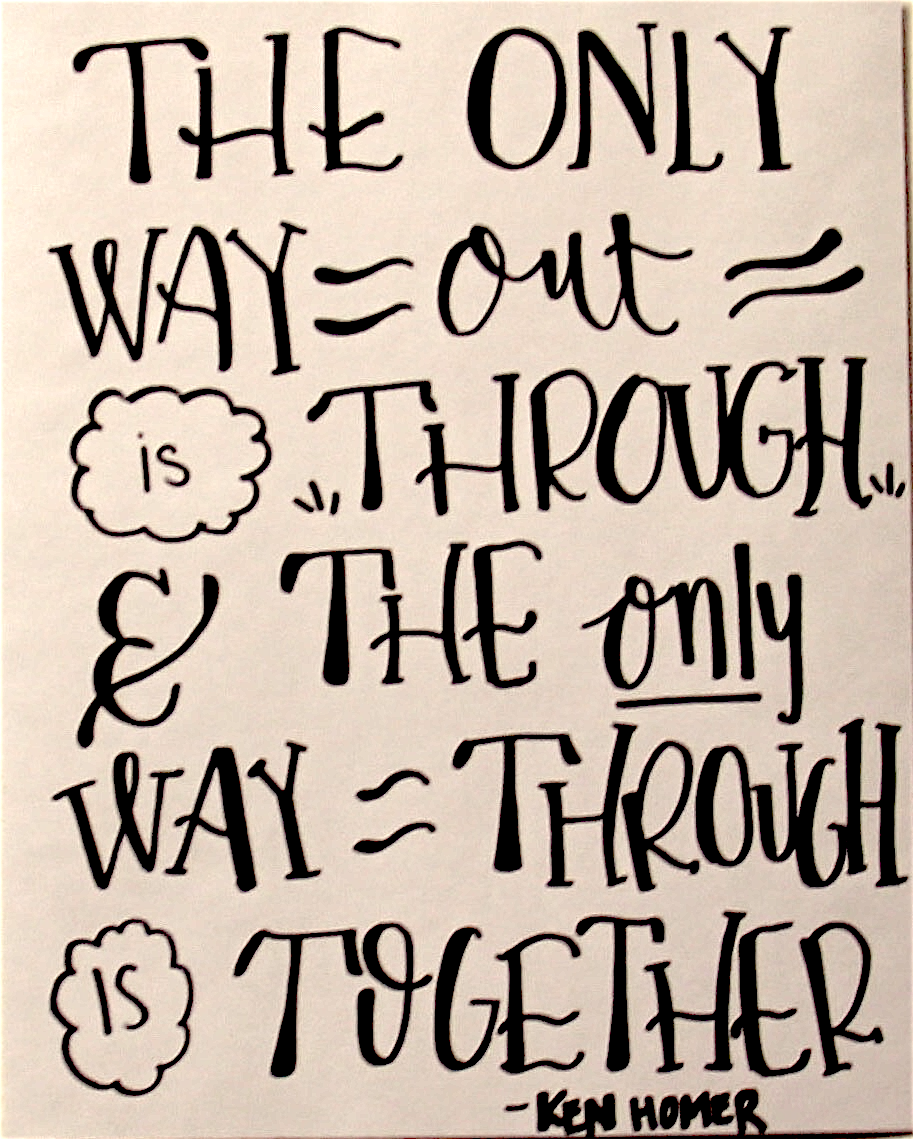 THE ONLY
WAY = out =
is THROUGH
& THE only
WAY = THROUGH
IS TOGETHER
-KEN HOMER